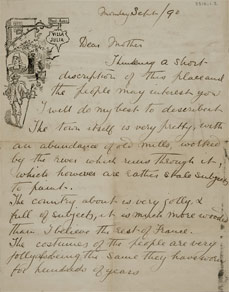 VILLA
JULIA
Monday Sept / 90
Dear Mother
Thinking a short
description of this place and
the people may interest you
I will do my best to describe it.
The town itself is very pretty, with
an abundance of old mills, worked
by the river which runs through it,
which however are rather stale subjects
to paint.
The country about is very jolly &
full of subject, it is much more wooded
than I believe the rest of France.
The costumes of the people are very
jolly being the same they have worn
for hundreds of years